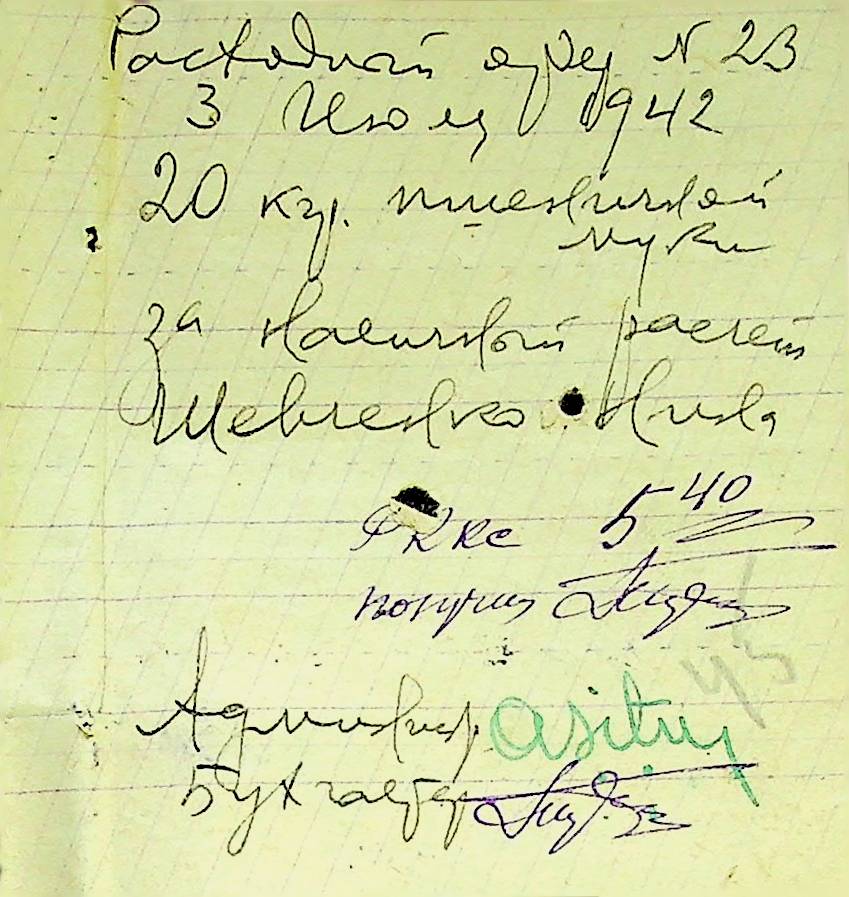 Расходный ордер N 23
3 Июля 1942
20 кгр. пшеничной
муки
за наличный расчет
Шевченко Нина
5 40
получил
Администр.
Бухгалтер